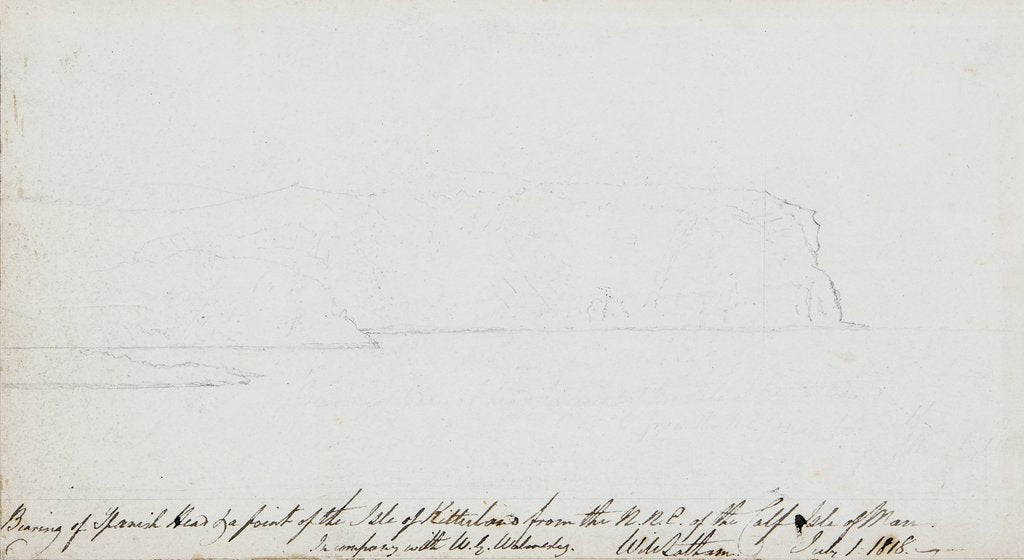 Bearing of Spanish Head & a point of the Isle of Kitterland from the N.N.E. of the Calf Isle of Man.
In company with W. G. Walmesley. Will Latham. July 1. 1818.